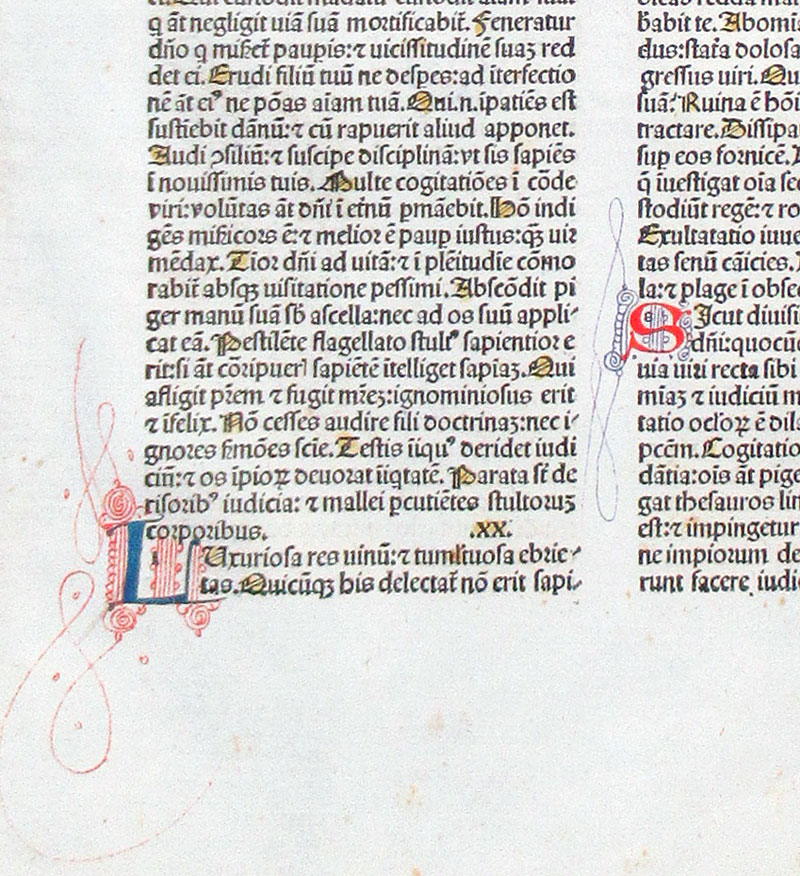 q āt negligit uiā suā mortificabit̄. Feneratur
dn̄o q miẜet̄ paupis: ⁊ uicissitudinē suaꝫ red
det ei. Erudi filiū tuū ne despes: ad īterfectio
nē āt eiꝰ ne pōas aīam tuā. Qui .n. īpatiēs est
sustīebit dānū: ⁊ cū rapuerit aliud apponet.
Audi ꝯsiliū: ⁊ suscipe disciplinā: vt sis sapiēs
ī nouissimis tuis. Multe cogitatiōes ī cōde
viri: volūtas āt dn̄i ī et̄nū pmāebit. Hō indi
gēs miẜicors ē: ⁊ melior ē paup iustus: qꝫ uir
mēdax. Tīor dn̄i ad uitā: ⁊ ī plēitudīe cōmo
rabit̄ absqꝫ uisitatione pessimi. Abscōdit pi
ger manū suā sb̄ ascella: nec ad os suū appli-
cat eā. Pestilēte flagellato stultꝰ sapientior e
rit: si āt cōripueri sapiētē ītelliget sapīaꝫ. Qui
afligit pr̄em ⁊ fugit mr̄eꝫ: ignominiosus erit
⁊ īfelix. Nō cesses audire fili doctrinaꝫ: nec i-
gnores ẜmōes scīe. Testis īiquꝰ deridet iudi
ciū: ⁊ os īpioꝝ deuorat īiqtatē. Parata st̄ de
risoribꝰ iudicia: ⁊ mallei pcutiētes stultoruꝫ
corporibus. .XX.
LUxuriosa res uinū: ⁊ tumltuosa ebrie-
tas. Quicūqꝫ his delectat̄ nō erit sapi-
ẜabit te. Abomīa
dus: stat̄a dolosa
gressus uiri. Qu
suā. Ruina ē hōi
tractare. Dissipa
sup eos fornicē.
q̄ īuestigat oīa sec
stodiūt regē: ⁊ ro
Exultatatio iuue
tas senū cāicies.
la: ⁊ plage ī obsec
SIcut diuisi
dn̄i: quocū
uia uiri recta sibi
mīaꝫ ⁊ iudiciū m
tatio ocl̄oꝝ ē dila
pcc̄m. Cogitatio
dātia: oīs āt pige
gat thesauros lin
est: ⁊ impingetur
ne impiorum de
runt facere iudi